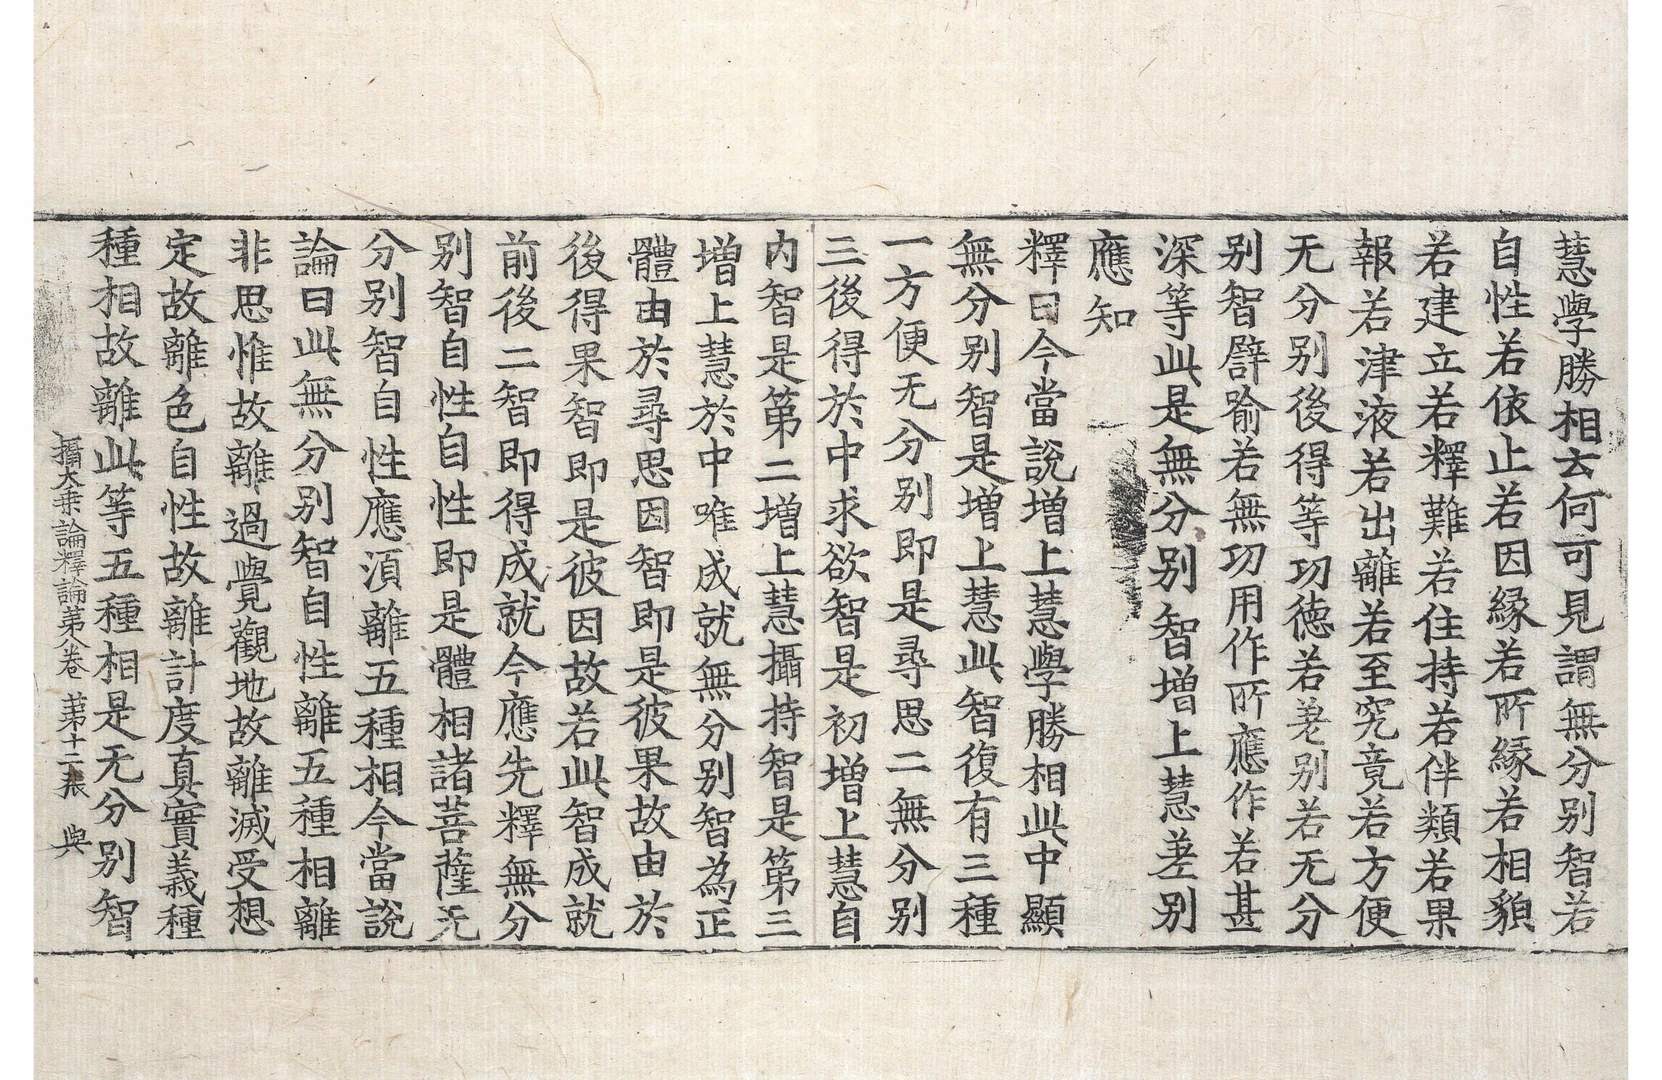 慧學勝相云何可見謂無分別智若
自性若依止若因緣若所緣若相貌
若建立若釋難若住持若伴類若果
報若津液若出離若至究竟若方便
无分別後得等功德若差別若无分
別智譬喻若無功用作所應作若甚
深等此是無分別智增上慧差別
應知
釋曰今當說增上慧學勝相此中顯
無分別智是增上慧此智復有三種
一方便无分別即是尋思二無分別
三後得於中求欲智是初增上慧自
內智是第二增上慧攝持智是第三
增上慧於中唯成就無分別智為正
體由於尋思因智即是彼果故由於
後得果智即是彼因故若此智成就
前後二智即得成就今應先釋無分
別智自性自性即是體相諸菩薩无
分別智自性應須離五種相今當說
論曰此無分別智自性離五種相離
非思惟故離過覺觀地故離滅受想
定故離色自性故離計度真實義種
種相故離此等五種相是无分別智
攝大乘論釋論第八卷 第十二張 與